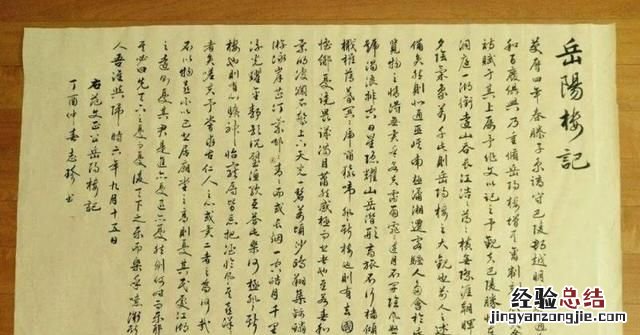 岳陽樓記
慶曆四年春滕子京謫守巴陵郡越明年政通
和百廢俱興乃重脩岳陽樓增其舊制
詩賦于其上屬予作文以記之予觀夫巴陵勝狀
洞庭一湖銜遠山吞長江浩浩湯湯橫無際涯朝暉
夕陰氣象萬千此則岳陽樓之大觀也前人之述
備矣然則北通巫峽南極瀟湘遷客騷人多會於
覽物之情得無異乎若夫霪雨霏霏連月不開陰風
號濁浪排空日星隱耀山岳潛形商旅不行檣傾
楫摧薄暮冥冥虎嘯猿啼登斯樓也則有去國
懷鄉憂讒畏譏滿目蕭然感極而悲者也至若春和
景明波瀾不驚上下天光一碧萬頃沙鷗翔集錦鱗
游泳岸芷汀蘭郁郁青青而或長煙一空皓月千里
浮光躍金靜影沉璧漁歌互答此樂何極登斯
樓也則有心曠神怡寵辱皆忘把酒臨風其喜洋洋
者矣嗟夫予嘗求古仁人之心或異二者之為何哉
不以物喜不以己悲居廟堂之高則憂其民處江湖
之遠則憂其君是進亦憂退亦憂然則何時而樂耶
其必曰先天下之憂而憂後天下之樂而樂乎噫微斯
人吾誰與歸時六年九月十五日
右范文正公岳陽樓記
丁酉仲春志珍書